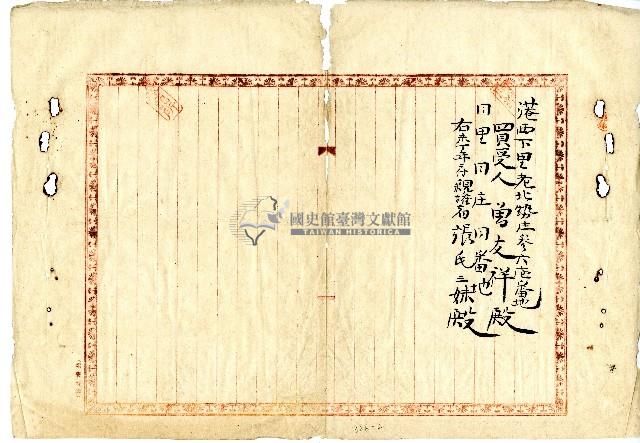 港西下里老北勢庄參六四番地
買受人 曾友祥殿
同里同庄同番地
右未丁年者親權者 張氏三妹殿
國史館臺灣文獻館
TAIWAN HISTORICA
326-2